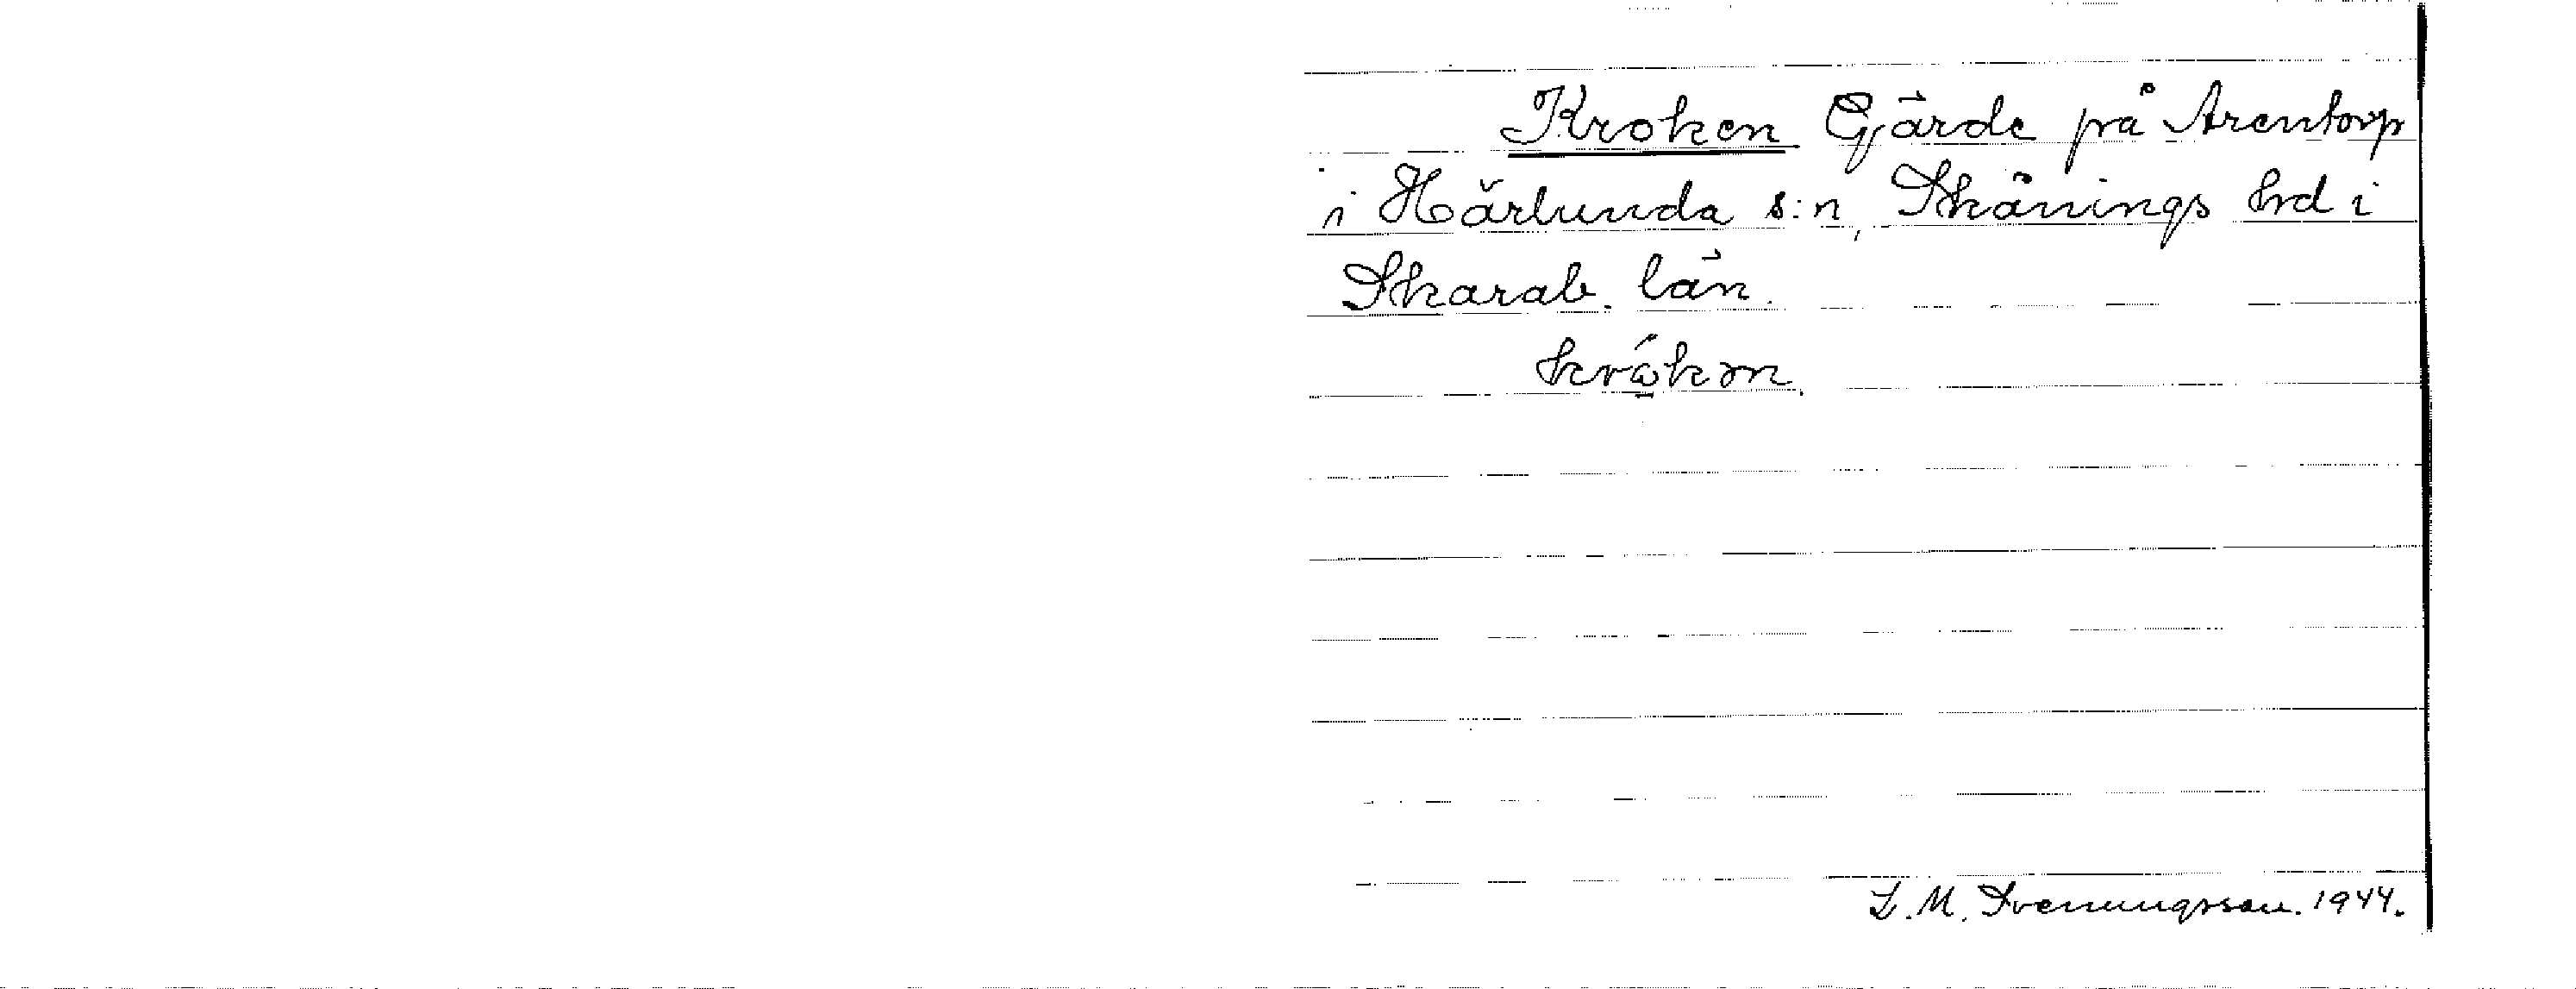 Kroken Gärde på Arentorp
i Härlunda s:n, Skånings hrd i
Skarab. län.
L. M. Svenungsson. 1944.